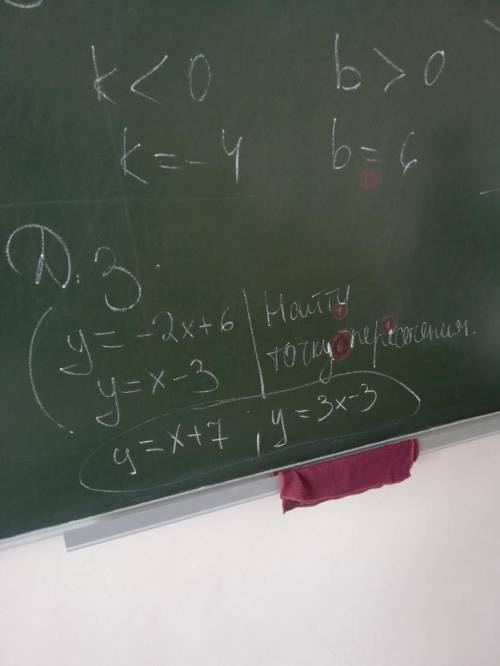 k < 0 b > 0
k = -4 b = 6
Д. З.
y = -2x+6 Найти
y = x-3 точку пересечения.
y = x+7, y = 3x-3